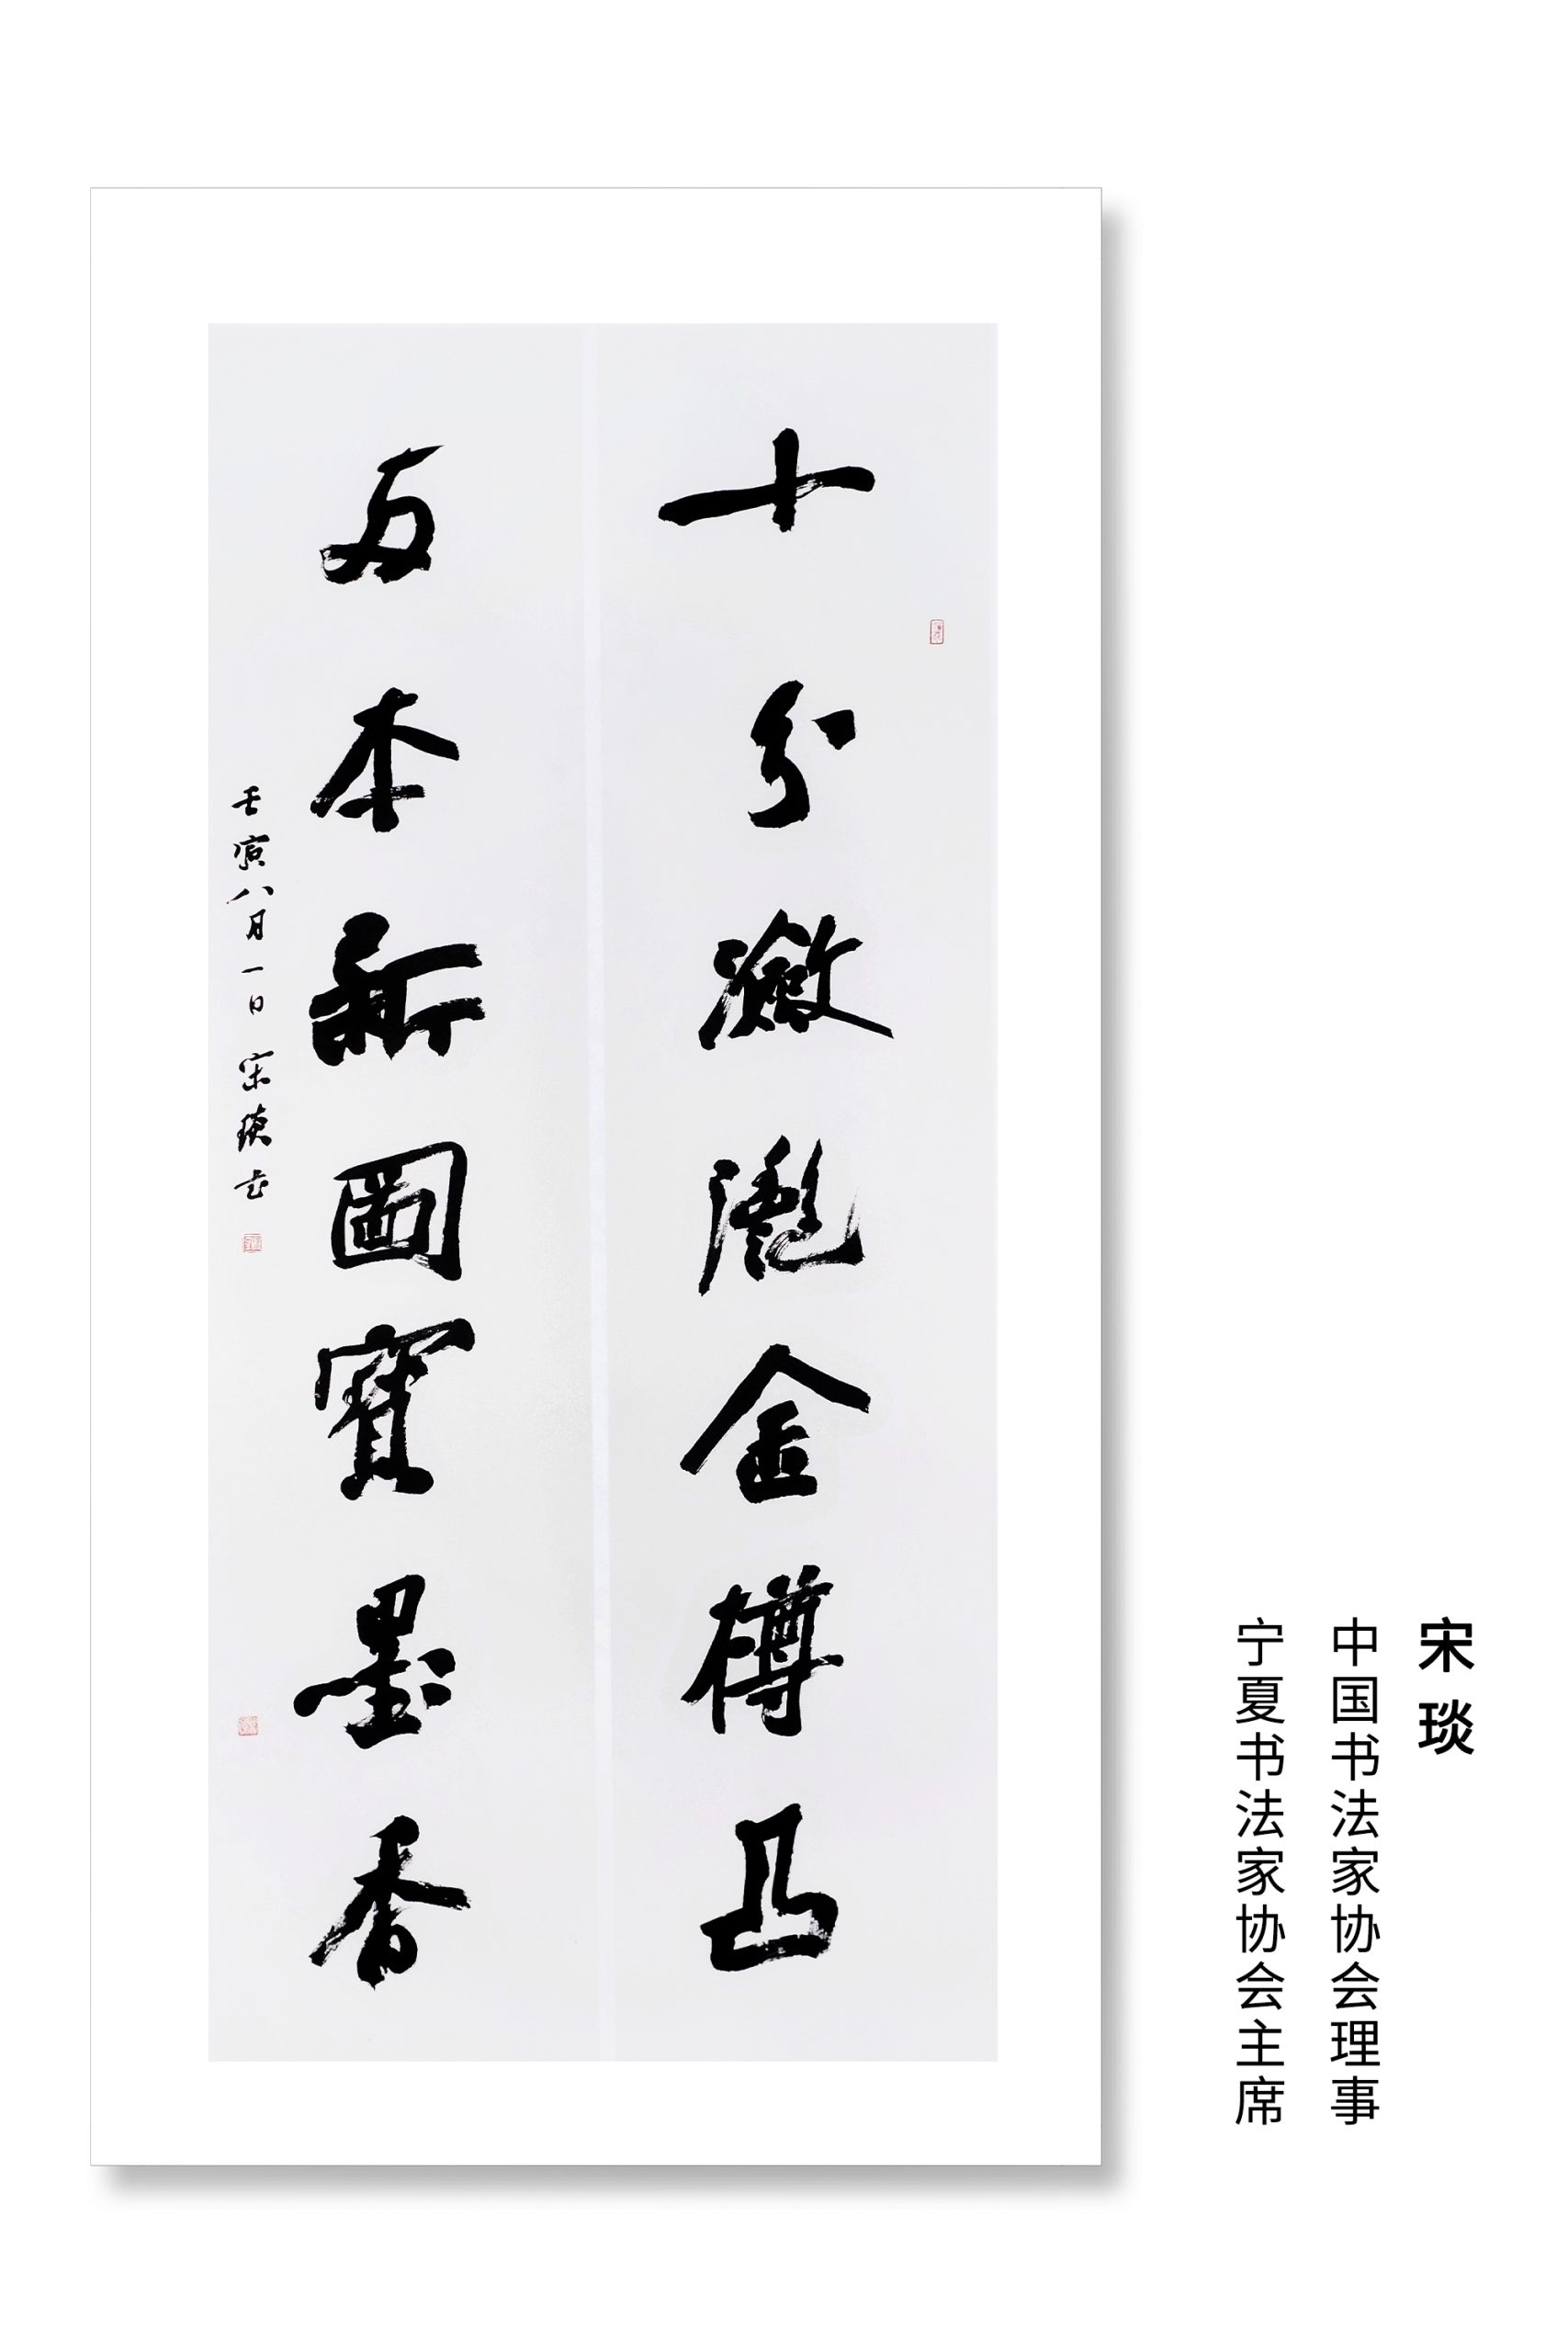 十分潋滟金樽凸
万本新图宝墨香
壬寅八月一日宋琰书
宋琰
中国书法家协会理事
宁夏书法家协会主席